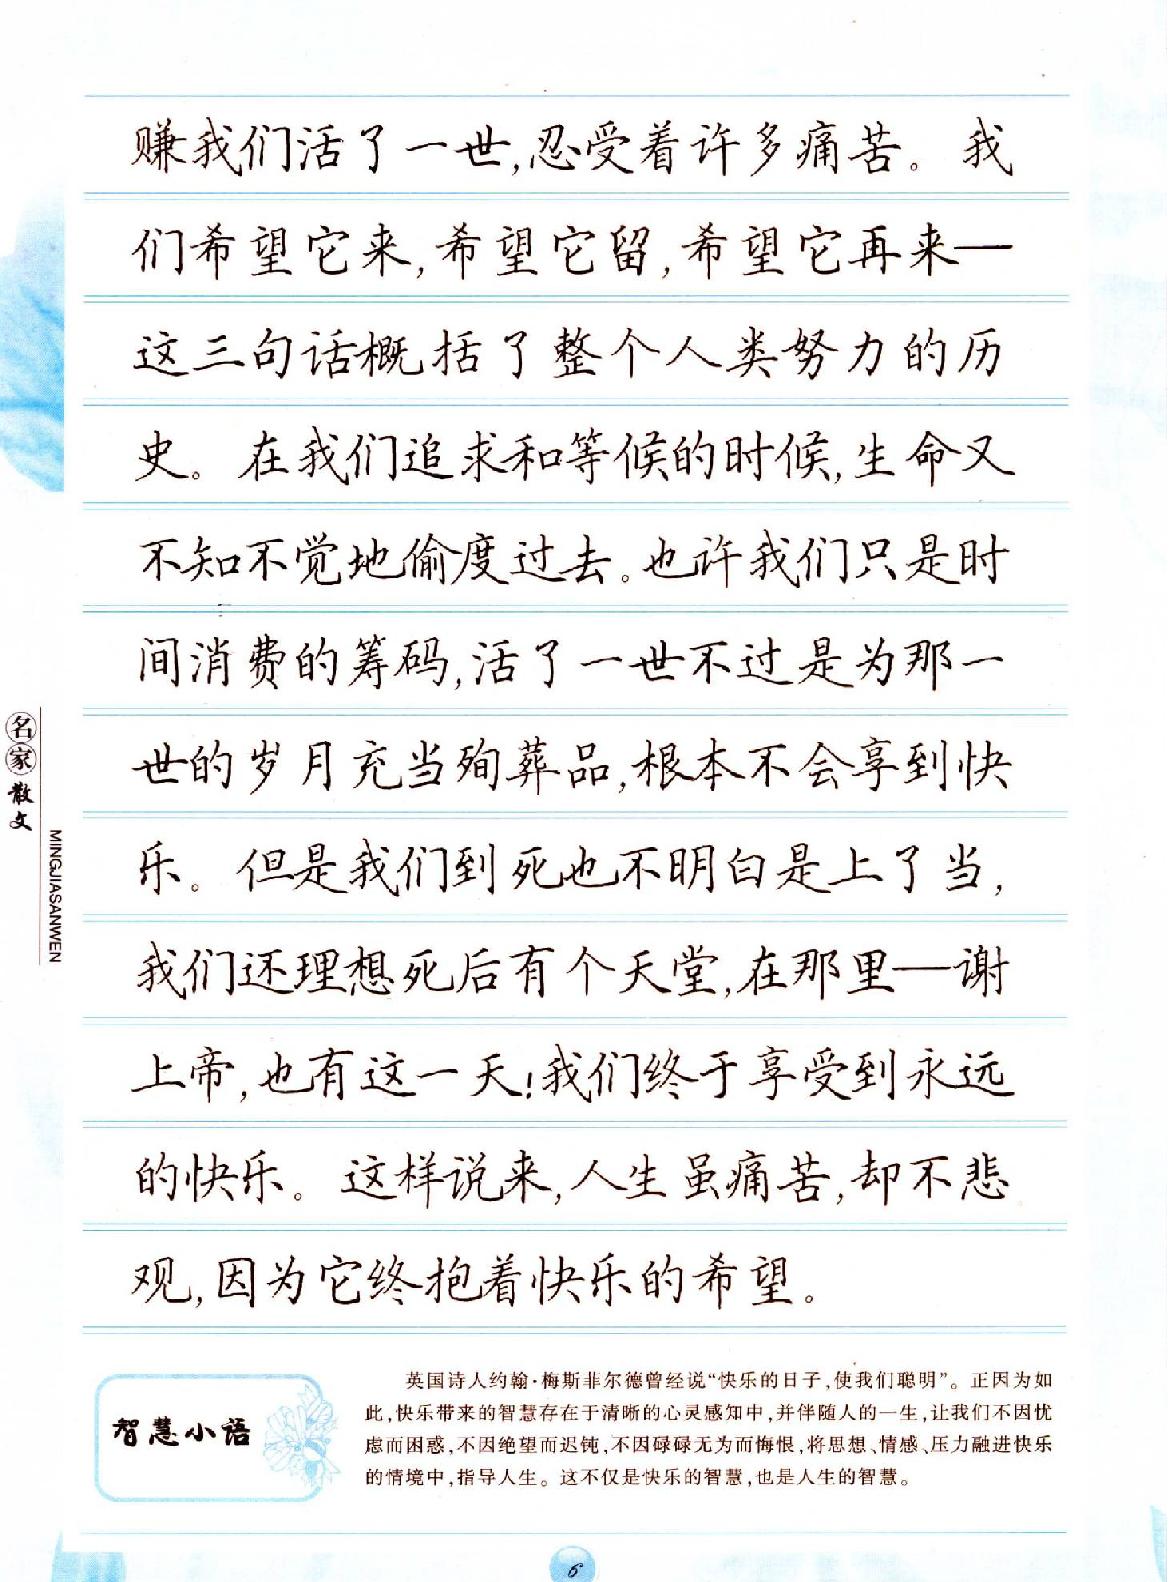 赚我们活了一世,忍受着许多痛苦。我
们希望它来,希望它留,希望它再来—
这三句话概括了整个人类努力的历
史。在我们追求和等候的时候,生命又
不知不觉地偷度过去。也许我们只是时
间消费的筹码,活了一世不过是为那一
世的岁月充当殉葬品,根本不会享到快
乐。但是我们到死也不明白是上了当,
我们还理想死后有个天堂,在那里—谢
上帝,也有这一天!我们终于享受到永远
的快乐。这样说来,人生虽痛苦,却不悲
观,因为它终抱着快乐的希望。
名家散文
MINGJIASANWEN
智慧小语
英国诗人约翰·梅斯菲尔德曾经说“快乐的日子,使我们聪明”。正因为如
此,快乐带来的智慧存在于清晰的心灵感知中,并伴随人的一生,让我们不因忧
虑而困惑,不因绝望而迟钝,不因碌碌无为而悔恨,将思想、情感、压力融进快乐
的情境中,指导人生。这不仅是快乐的智慧,也是人生的智慧。
6